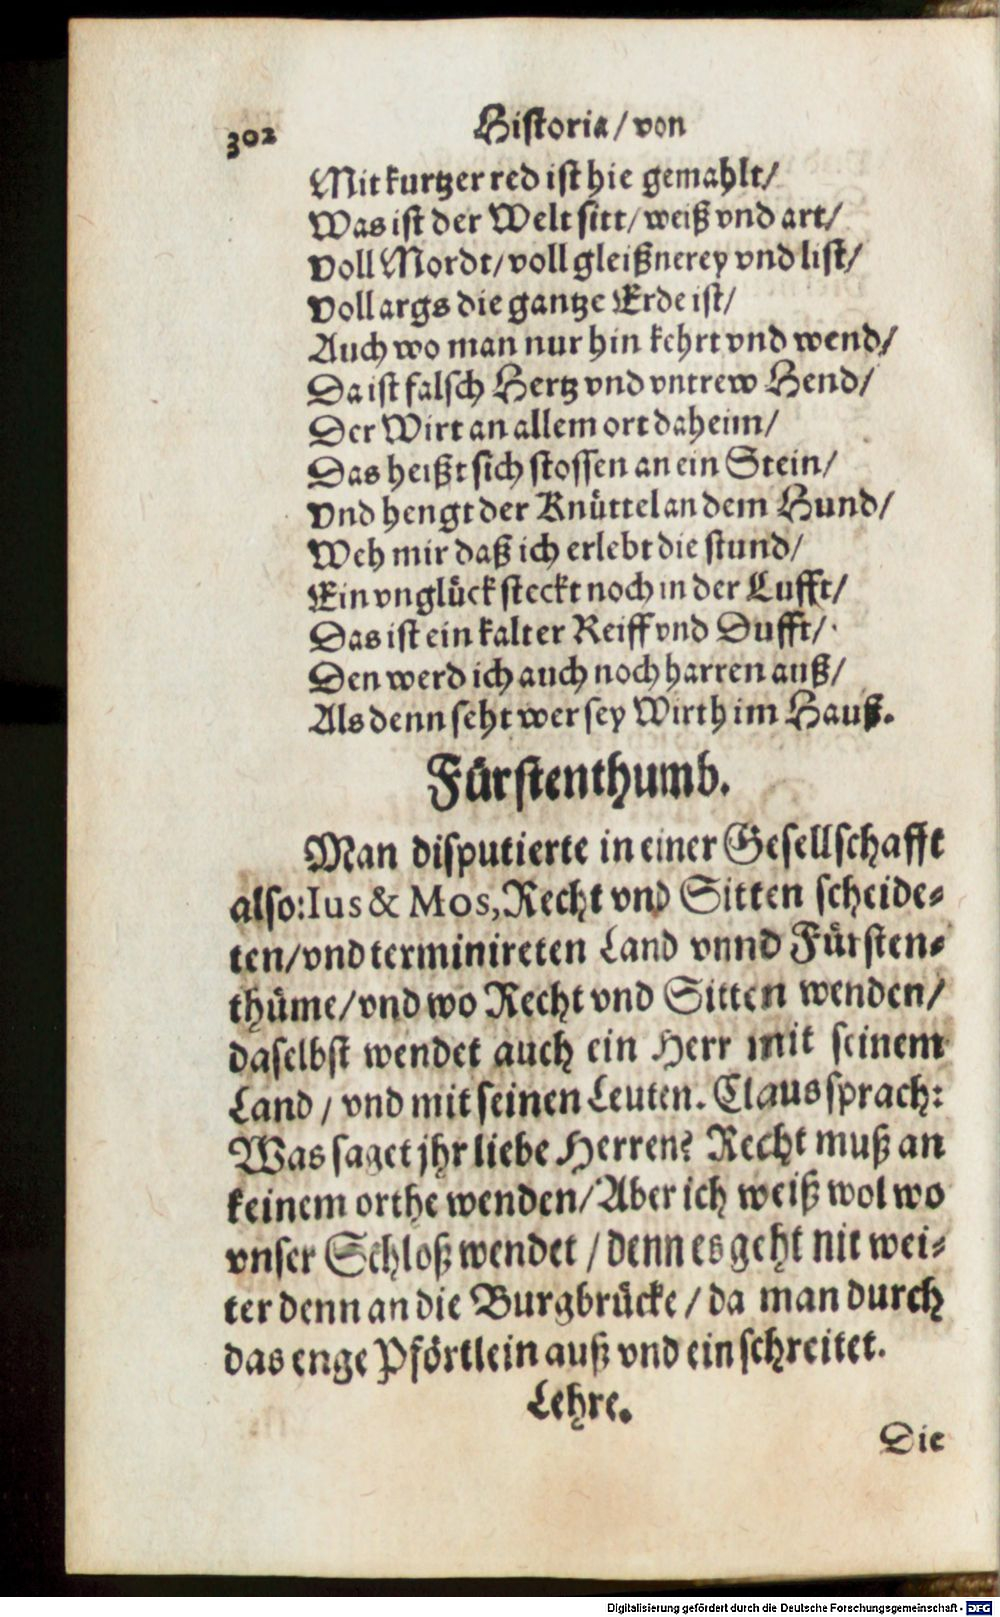 302 Historia/ von
Mit kurtzer red ist hie gemahlt/
Was ist der Welt sitt/ weiß vnd art/
Voll Mordt/ voll gleißnerey vnd list/
Voll args die gantze Erde ist/
Auch wo man nur hin kehrt vnd wend/
Da ist falsch Hertz vnd vntrew Hend/
Der Wirt an allem ort daheim/
Das heißt sich stossen an ein Stein/
Vnd hengt der Knüttel an dem Hund/
Weh mir daß ich erlebt die stund/
Ein vnglück steckt noch in der Lufft/
Das ist ein kalter Reiff vnd Dufft/
Den werd ich auch noch harren auß/
Als denn seht wer sey Wirth im Hauß.
Fürstenthumb.
Man disputierte in einer Gesellschafft
also: Ius & Mos, Recht vnd Sitten scheide-
ten/ vnd terminireten Land vnnd Fürsten-
thüme/ vnd wo Recht vnd Sitten wenden/
daselbst wendet auch ein Herr mit seinem
Land/ vnd mit seinen Leuten. Claus sprach:
Was saget jhr liebe Herren? Recht muß an
keinem orthe wenden/ Aber ich weiß wol wo
vnser Schloß wendet/ denn es geht nit wei-
ter denn an die Burgbrücke/ da man durch
das enge Pförtlein auß vnd ein schreitet.
Lehre.
Die
Digitalisierung gefördert durch die Deutsche Forschungsgemeinschaft - DFG